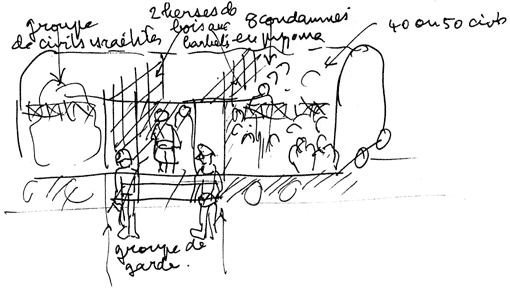 groupe
de civils israélites
2 herses de
bois aux
barbelés
8 condamnés
en pyjama
40 ou 50 civils
groupe de
garde.